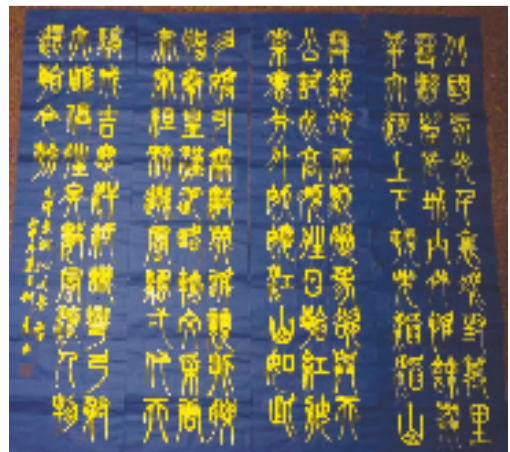 北國風光千里冰封萬里
雪飄望長城内外惟餘莽
莽大河上下頓失滔滔山
舞銀蛇原馳蠟象欲與天
公試比高須晴日看紅裝
素裹分外妖嬈江山如此
多嬌引無數英雄競折腰
惜秦皇漢武略輸文采唐
宗宋祖稍遜風騷一代天
驕成吉思汗只識彎弓射
大雕俱往矣數風流人物
還看今朝